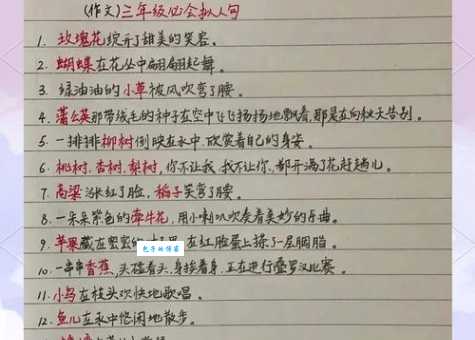 （作文）三年级必会拟人句
1. 玫瑰花绽开了甜美的笑容。
2. 蝴蝶在花丛中翩翩起舞。
3. 绿油油的小草被风吹弯了腰。
4. 蒲公英那带绒毛的种子在空中飞飞扬扬地飘着，那是在向秋天告别。
5. 一排排柳树倒映在水中，欣赏着自己的身姿。
6. 桃树、杏树、梨树，你不让我，我不让你，都开满了花赶趟儿。
7. 高粱涨红了脸，稻子笑弯了腰。
8. 一朵朵紫色的牵牛花，用小喇叭吹奏着美妙的乐曲。
9. 苹果藏在密密的 在红脸蛋上搽了一层胭脂。
10. 一串串香蕉，头碰着头，身挨着身，正在进行叠罗汉比赛。
11. 小鸟在枝头欢快地歌唱。
12. 鱼儿在水中悠闲地散步。